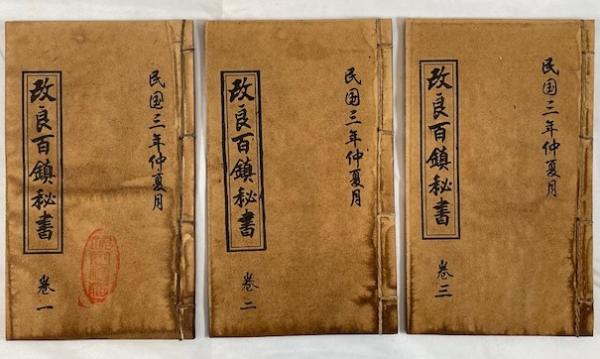 民国三年仲夏月
改良百鎮秘書
卷一
民国三年仲夏月
改良百鎮秘書
卷二
民国三年仲夏月
改良百鎮秘書
卷三